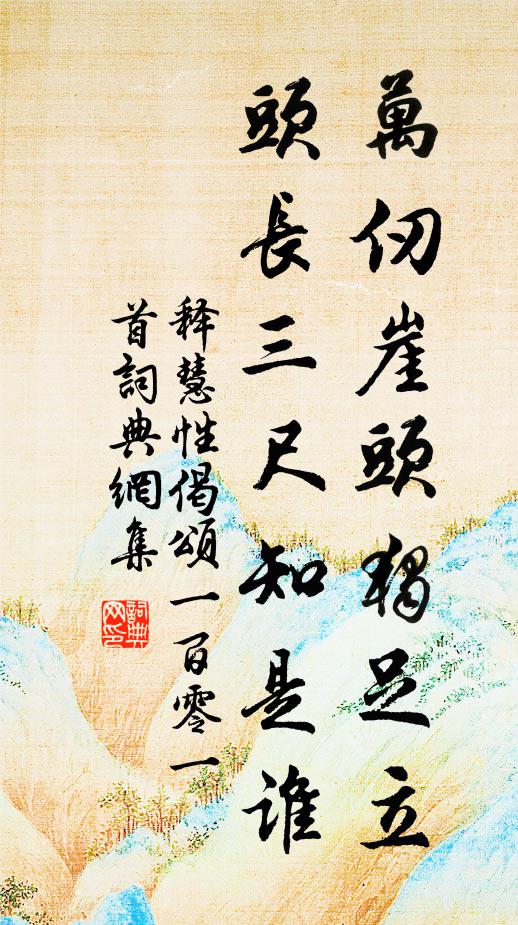 萬仞崖頭獨足立
頭長三尺知是誰
释慧性偈頌一百零一
首詞典網集
詞典網印